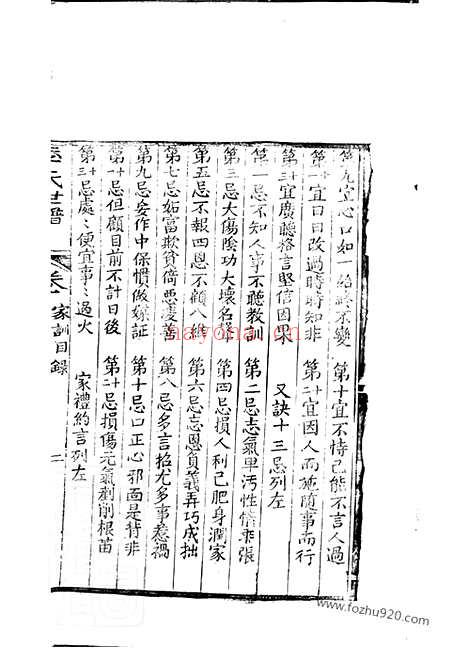 第九宜心口如一始終不變　第十宜不恃己能不言人過
第十一宜日日改過時時知非　第十二宜因人而施隨事而行
第十三宜廣聽格言堅信因果　又訣十三忌列左
第一忌不知人事不聽教訓　第二忌志氣卑汚性情乖張
第三忌大傷陰功大壞名節　第四忌損人利己肥身潤家
第五忌不報四恩不顧八義　第六忌忘恩負義弄巧成拙
第七忌妬富欺貧倚惡凌善　第八忌多言招尤多事惹禍
第九忌妄作中保慣做媒証　第十忌口正心邪面是背非
第十一忌但顧目前不計日後　第十二忌損傷元氣剷削根苗
第十三忌處〻便宜事〻過火　家禮約言列左
氏世譜　卷　家訓目錄　二
hayona.com
www.fozhu920.com